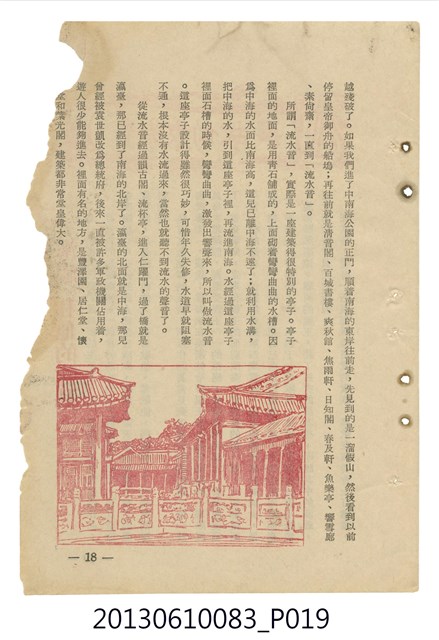 越殘破了。如果我們進了中南海公園的正門，順着南海的東岸往前走，先見到的是一溜假山，然後看到以前
停留皇帝御舟的船塢；再往前就是清音閣、百城書樓、爽秋館、焦雨軒、日知閣、春及軒、魚樂亭、響雪廊
、素尚齋，一直到「流水音」。
所謂「流水音」，實際是一座建築得很特別的亭子。亭子
裡面的地面，是用青石舖成的，上面砌着彎彎曲曲的水槽。因
爲中海的水面比南海高，這兒已離中海不遠了；就利用水溝，
把中海的水，引到這座亭子裡，再流進南海。水經過這座亭子
裡面石槽的時候，彎彎曲曲，激發出響聲來，所以叫做流水音
。這座亭子設計得雖然很巧妙，可惜年久失修，水道早就阻塞
不通，根本沒有水流過來，當然也就聽不到流水的聲音了。
從流水音經過韻古閣、流杯亭，進入仁曜門，過了橋就是
瀛臺，那已經到了南海的北岸了。瀛臺的北面就是中海，那兒
曾經被袁世凱改爲總統府，後來一直被許多軍政機關佔用着，
遊人很少能夠進去。裡面有名的地方，是豐澤園、居仁堂、懷
堂和紫光閣，建築都非常堂皇偉大。
— 18 —
20130610083_P019